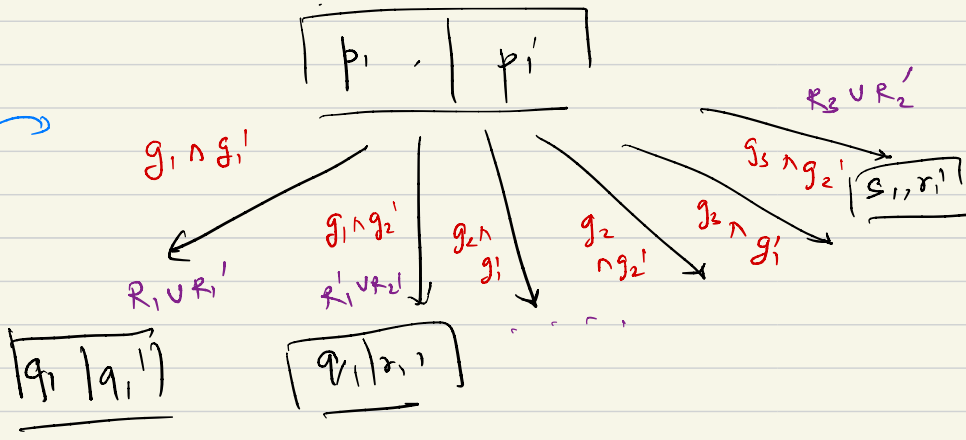 p₁ , | p₁'
R₃ ∪ R₂'
g₁ ∧ g₁'
g₃ ∧ g₂'
s₁, r₁'
g₁ ∧ g₂'
g₂ ∧
g₁'
g₂
∧ g₂'
g₃ ∧
g₁'
R₁ ∪ R₁'
R₁' ∪ R₂'
q₁ | q₁'
q₁ | r₁'